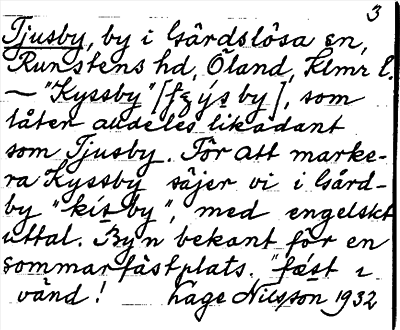 3
Tjusby, by i Gårdslösa sn,
Runstens hd, Öland, Klmr l.
— "Kyssby" [ by], som
låter alldeles likadant
som Tjusby. För att marke-
ra Kyssby säjer vi i Gård-
by "kít by", med engelskt
uttal. Byn bekant för en
sommarfästplats. "fæst ı
vänd! Lage Nilsson 1932